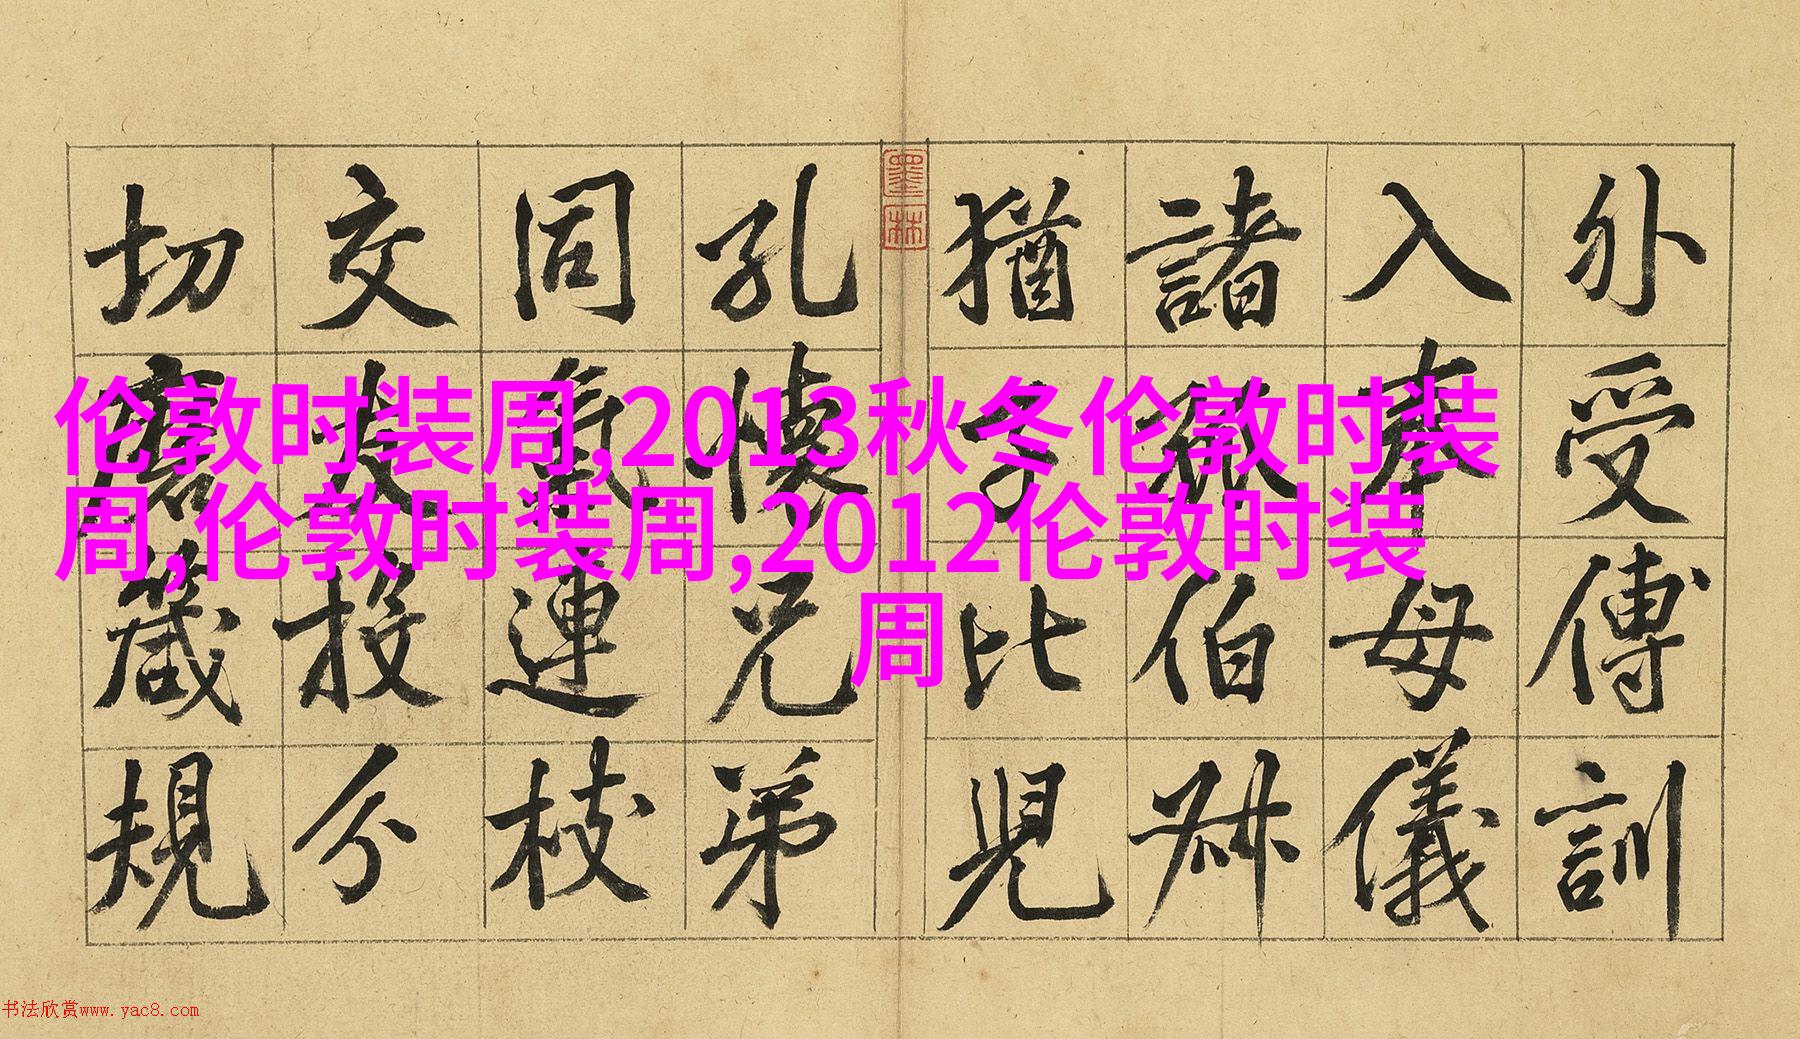 外受傅訓
入奉母儀
諸姑伯叔
猶子比兒
孔懷兄弟
同氣連枝
交友投分
切磨箴規
墨林
伦敦时装周,2013秋冬伦敦时装
周,伦敦时装周,2012伦敦时装
周
书法欣赏www.yac8.com